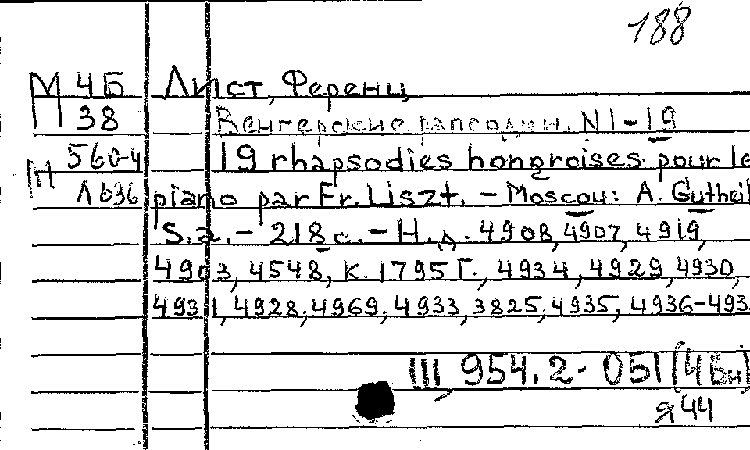 188
М 4Б Лист, Ференц
П 38 Венгерские рапсодии. N1-19
560-4 19 rhapsodies hongroises pour le
Л636 piano par Fr. Liszt. - Moscou: A. Gutheil
S.a. - 218 с. - Н.д. 4908, 4907, 4919,
4903, 4548, К. 1795 Г., 4934, 4929, 4930,
4931, 4928, 4969, 4933, 3825, 4935, 4936-493
III 954.2-051 (4Вн)
Я44